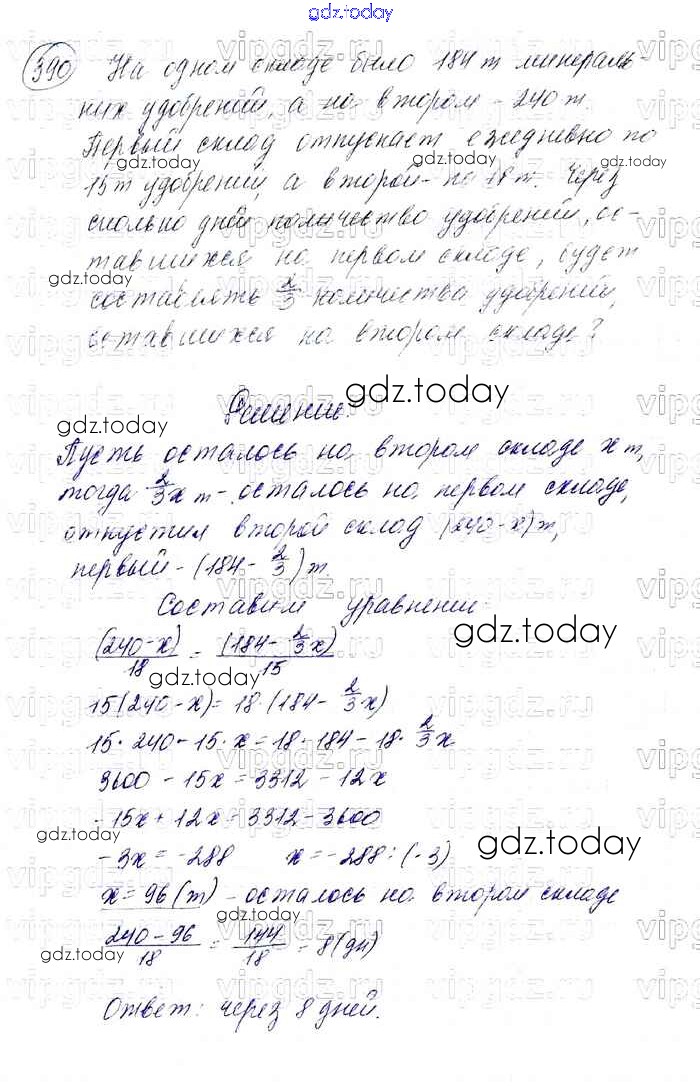 gdz.today
390 На одном складе было 184 т минераль-
ных удобрений, а на втором - 240 т.
Первый склад отпускает ежедневно по
15 т удобрений, а второй - по 18 т. Через
сколько дней количество удобрений, ос-
тавшихся на первом складе, будет
составлять 2/3 количества удобрений,
оставшихся на втором складе?
Решение:
Пусть осталось на втором складе x т,
тогда 2/3 x т - осталось на первом складе,
отпустил второй склад (240-x) т,
первый - (184 - 2/3) т.
Составим уравнение:
(240-x)/18 = (184 - 2/3 x)/15
15(240-x) = 18·(184 - 2/3 x)
15·240 - 15·x = 18·184 - 18·2/3 x
3600 - 15x = 3312 - 12x
-15x + 12x = 3312 - 3600
-3x = -288 x = -288 : (-3)
x = 96 (т) - осталось на втором складе
(240-96)/18 = 144/18 = 8 (дн)
Ответ: через 8 дней.